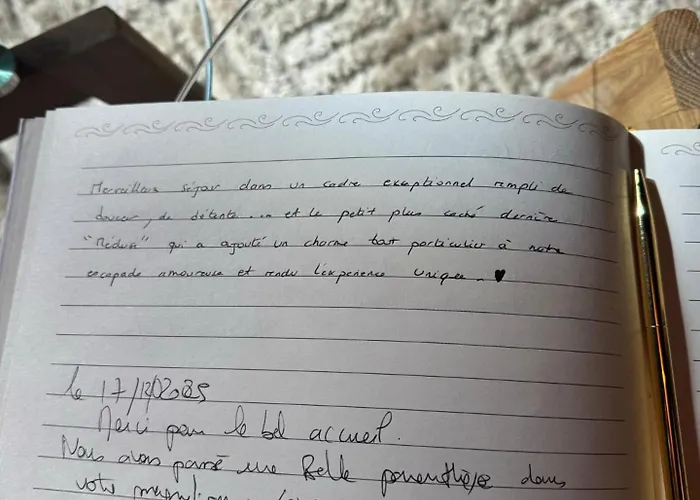 Merveilleux séjour dans un cadre exceptionnel rempli de
douceur, de détente ... et le petit plus caché derrière
"Méduse" qui a ajouté un charme tout particulier à notre
escapade amoureuse et rendu l'expérience unique. ♥
le 17/
Merci pour le bel accueil.
Nous avons passé une Belle parenthèse dans
votre